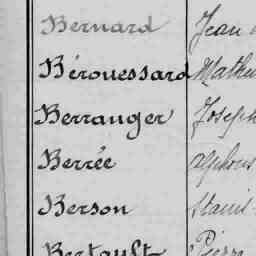 Bernard Jean
Bérouessard Mathu
Berranger Joseph
Berrée alphons
Berson Stanis
Bertault Pierr